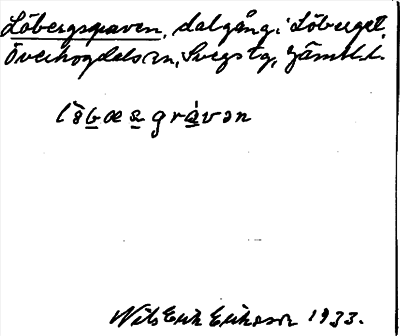 Löbergsgraven, dalgång i Löberget,
Överhogdals sn, Svegs tg, Jämtl. l.
lö̀bæsgrávən
Nils Erik Eriksson 1933.